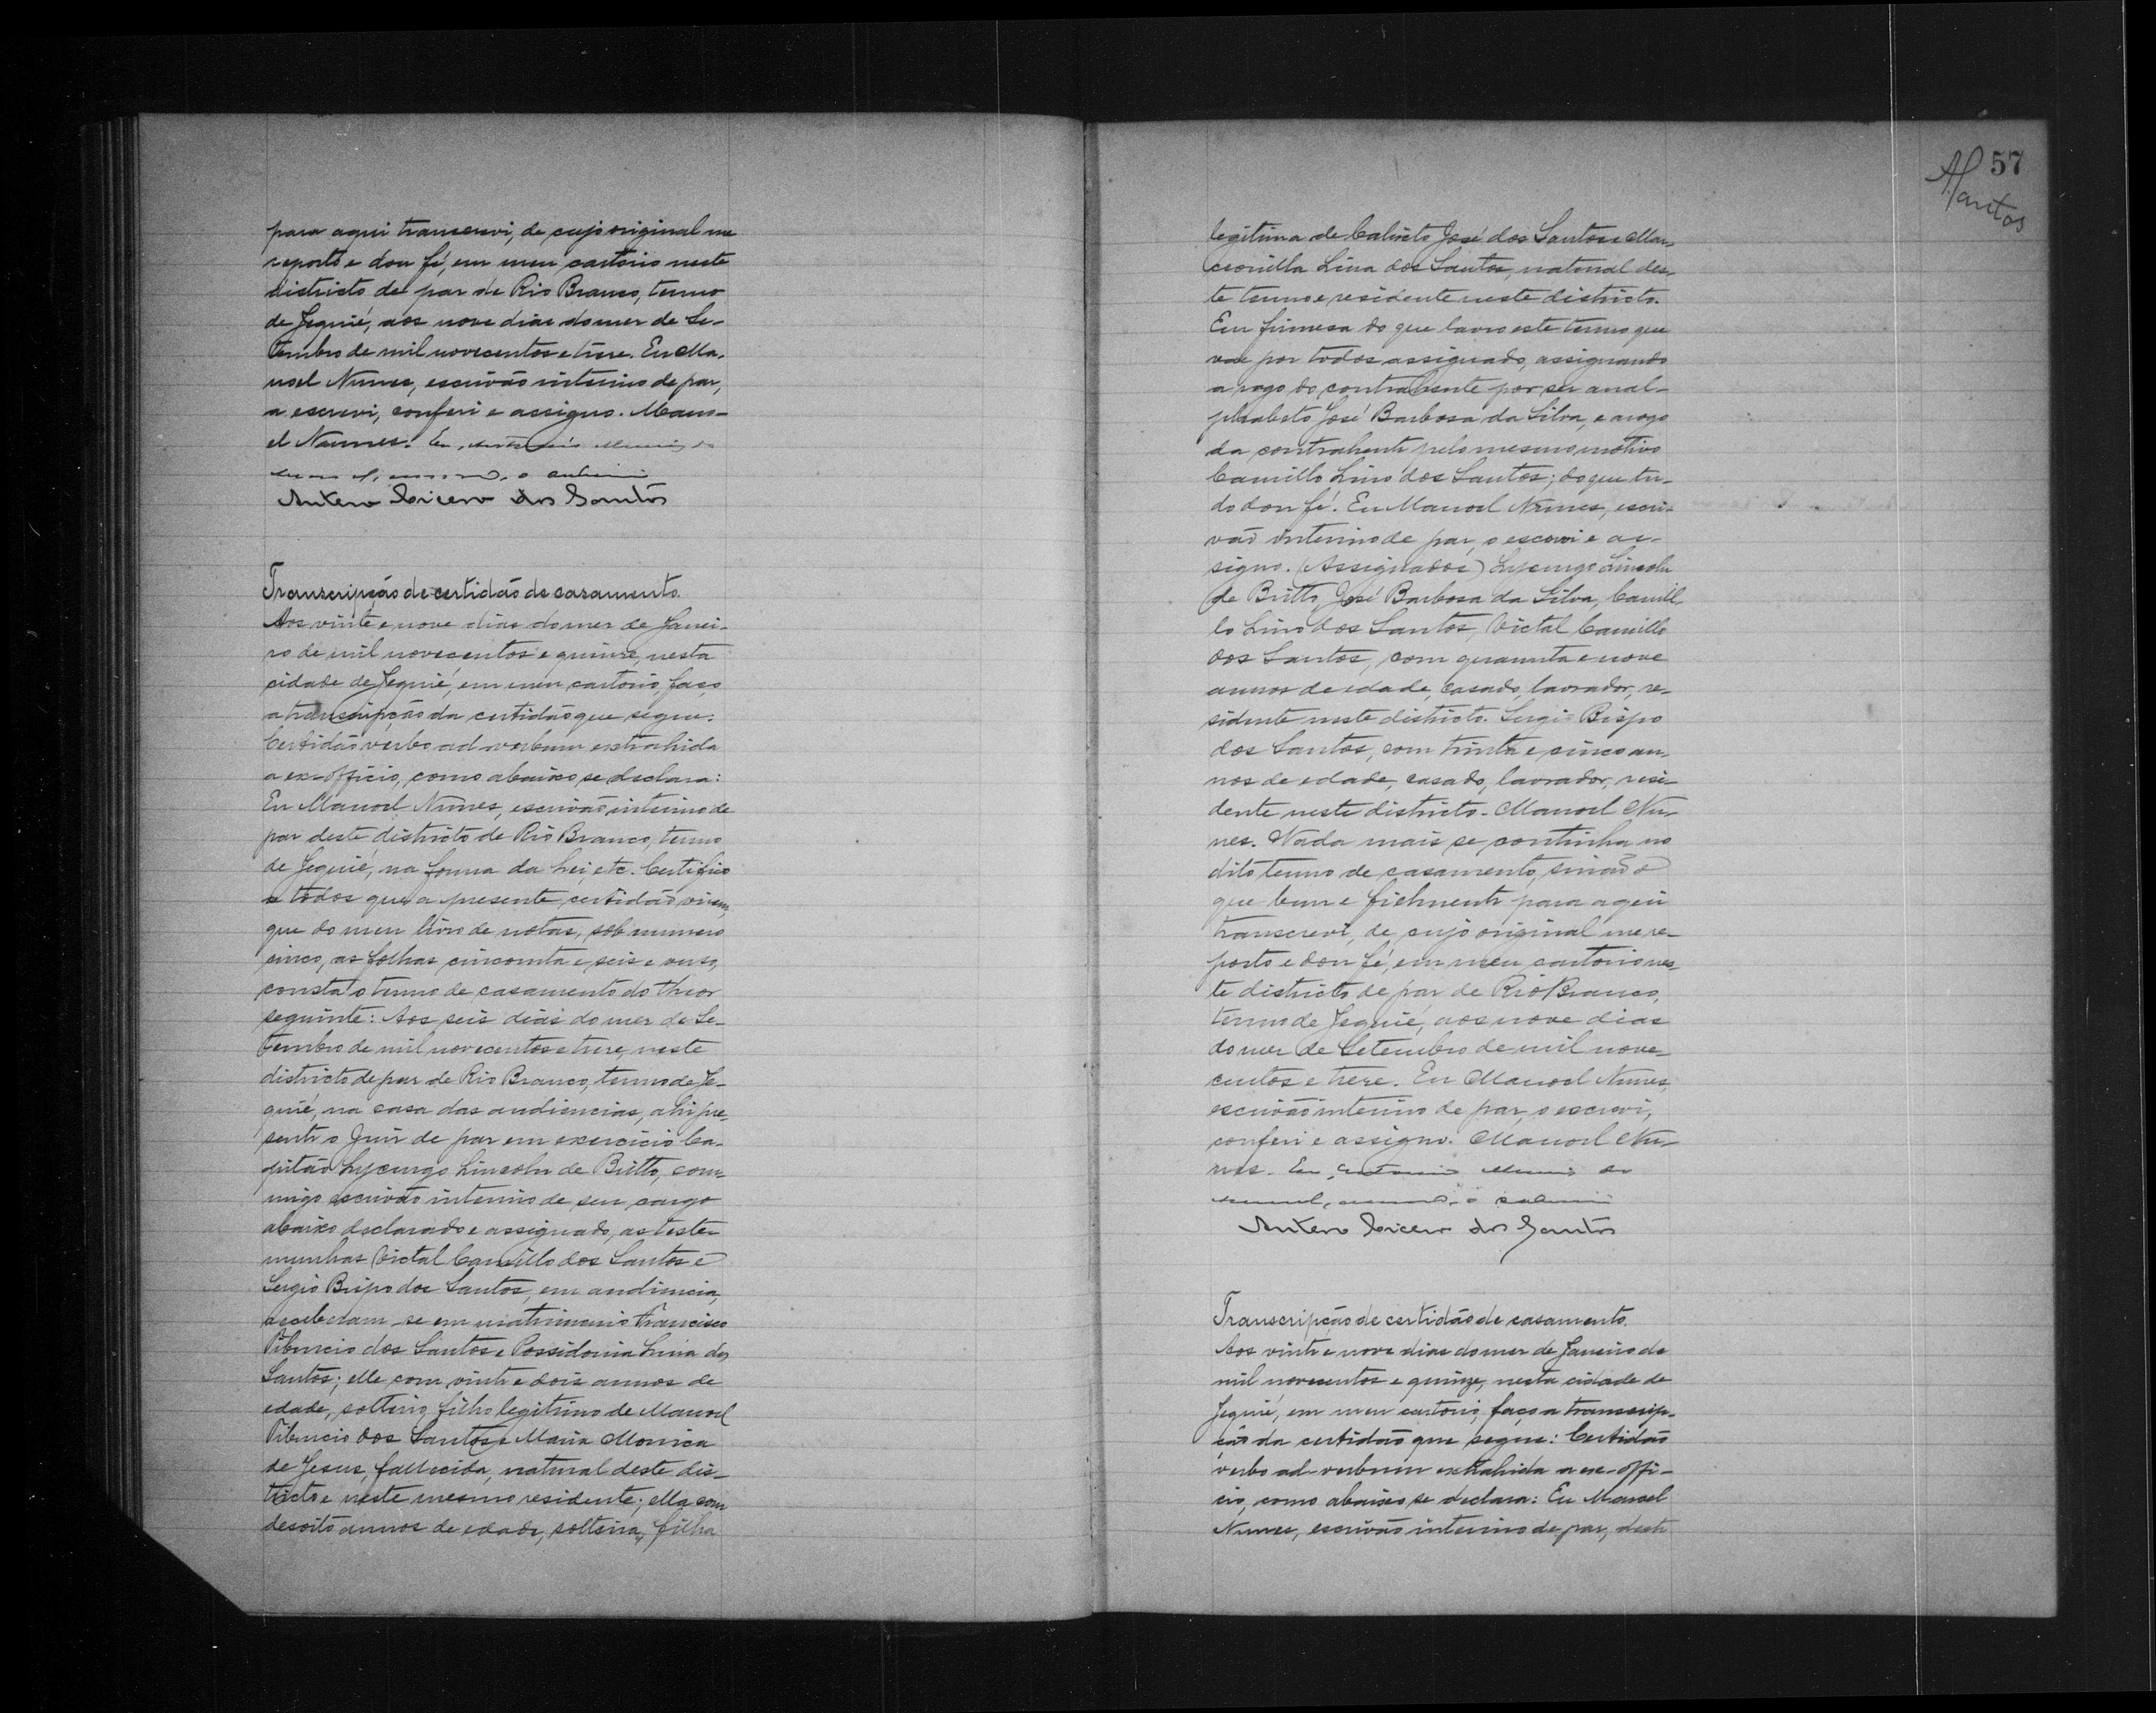 para aqui transcrevi, de cujo original me
reporto e dou fé, em meu cartorio neste
districto de paz de Rio Branco, termo
de Jequié, aos nove dias do mez de Se-
tembro de mil novecentos e treze. Eu Ma-
noel Nunes, escrivão interino de paz,
a escrevi, conferi e assigno. Mano-
el Nunes. Eu,
o
Antero Cicero dos Santos
Transcripção de certidão de casamento.
Aos vinte e nove dias do mez de Janei-
ro de mil novecentos e quinze, nesta
cidade de Jequié, em meu cartorio, faço
a transcripção da certidão que segue:
Certidão verbo ad-verbum extrahida
a ex-officio, como abaixo se declara:
Eu Manoel Nunes, escrivão interino de
paz deste districto de Rio Branco, termo
de Jequié, na forma da Lei, etc. Certifico
a todos que a presente certidão virem,
que do meu livro de notas, sob numero
cinco, as folhas cincoenta e seis e verso,
consta o termo de casamento do theor
seguinte: Aos seis dias do mez de Se-
tembro de mil novecentos e treze, neste
districto de paz de Rio Branco, termo de Je-
quié, na casa das audiencias, ahi pre-
sente o Juiz de paz em exercicio Ca-
pitão Lycurgo Lincoln de Britto, com-
migo escrivão interino de seu cargo
abaixo declarado e assignado, as teste-
munhas Victal Camillo dos Santos e
Sergio Bispo dos Santos, em audiencia,
receberam-se em matrimonio Francisco
Tiburcio dos Santos e Possidonia Lina dos
Santos; elle com vinte e dois annos de
edade, solteiro, filho legitimo de Manoel
Tiburcio dos Santos e Maria Monica
de Jesus, fallecida, natural deste dis-
tricto e neste mesmo residente; ella com
desoito annos de edade, solteira, filha
57
ASantos
legitima de Calixto José dos Santos e Mar-
cionilla Lina dos Santos, natural des-
te termo e residente neste districto.
Em firmesa do que lavro este termo que
vae por todos assignado, assignando
a rogo do contrahente por ser anal-
phabeto José Barbosa da Silva, e a rogo
da contrahente pelo mesmo motivo
Camillo Lino dos Santos; do que tu-
do dou fé. Eu Manoel Nunes, escri-
vão interino de paz, o escrevi e as-
signo. (Assignados) Lycurgo Lincoln
de Britto, José Barbosa da Silva, Camil-
lo Lino dos Santos, Victal Camillo
dos Santos, com quarenta e nove
annos de edade, casado, lavrador, re-
sidente neste districto. Sergio Bispo
dos Santos, com trinta e cinco an-
nos de edade, casado, lavrador, resi-
dente neste districto. Manoel Nu-
nes. Nada mais se continha no
dito termo de casamento, sinão o
que bem e fielmente para aqui
transcrevi, de cujo original me re-
porto e dou fé, em meu cartorio nes-
te districto de paz de Rio Branco,
termo de Jequié, aos nove dias
do mez de Setembro de mil nove-
centos e treze. Eu Manoel Nunes,
escrivão interino de paz, o escrevi,
conferi e assigno. Manoel Nu-
nes. Eu, Antonio
o
Antero Cicero dos Santos
Transcripção de certidão de casamento.
Aos vinte e nove dias do mez de Janeiro de
mil novecentos e quinze, nesta cidade de
Jequié, em meu cartorio, faço a transcrip-
ção da certidão que segue: Certidão
verbo ad-verbum extrahida a ex-offi-
cio, como abaixo se declara: Eu Manoel
Nunes, escrivão interino de paz, deste